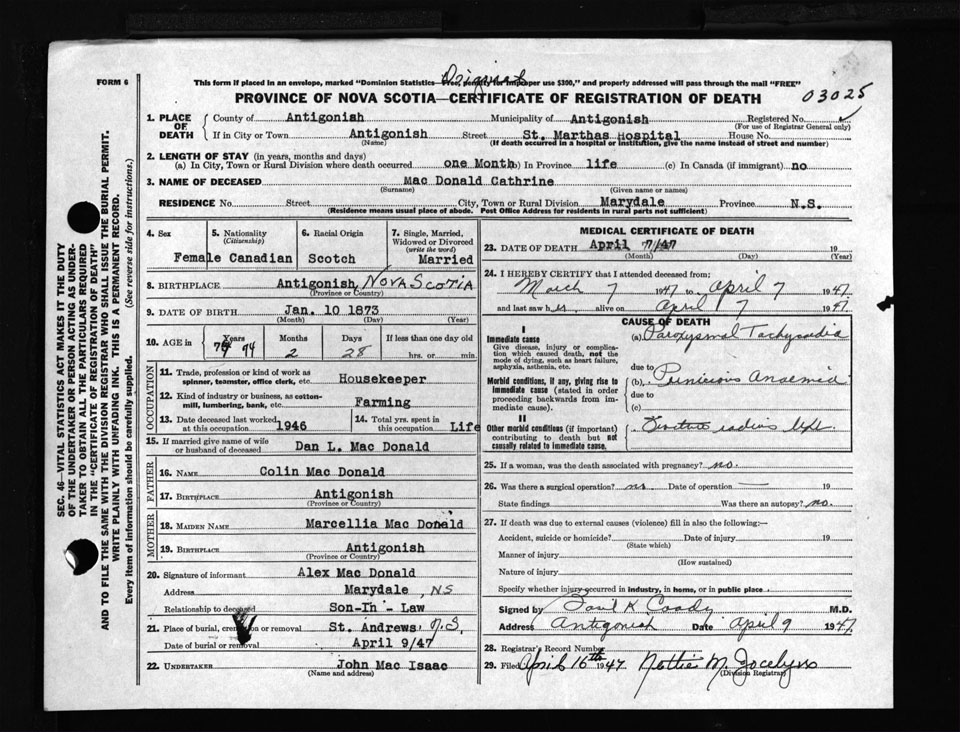 FORM 6
Original
This form if placed in an envelope, marked "Dominion Statistics—Free, penalty for improper use $300," and properly addressed will pass through the mail "FREE"
PROVINCE OF NOVA SCOTIA—CERTIFICATE OF REGISTRATION OF DEATH
03025
1. PLACE OF DEATH
County of Antigonish Municipality of Antigonish Registered No.
(For use of Registrar General only)
If in City or Town Antigonish Street St. Marthas Hospital House No.
(Name) (If death occurred in a hospital or institution, give the name instead of street and number)
2. LENGTH OF STAY (in years, months and days)
(a) In City, Town or Rural Division where death occurred one Month (b) In Province life (c) In Canada (if immigrant) no
3. NAME OF DECEASED Mac Donald Cathrine
(Surname) (Given name or names)
RESIDENCE No. Street City, Town or Rural Division Marydale Province N.S.
(Residence means usual place of abode. Post Office Address for residents in rural parts not sufficient)
4. Sex Female
5. Nationality (Citizenship) Canadian
6. Racial Origin Scotch
7. Single, Married, Widowed or Divorced (write the word) Married
8. BIRTHPLACE Antigonish, NOVA SCOTIA
(Province or Country)
9. DATE OF BIRTH Jan. 10 1873
(Month) (Day) (Year)
10. AGE in Years 74 Months 2 Days 28 If less than one day old hrs. or min.
OCCUPATION
11. Trade, profession or kind of work as spinner, teamster, office clerk, etc. Housekeeper
12. Kind of industry or business, as cotton-mill, lumbering, bank, etc. Farming
13. Date deceased last worked at this occupation 1946
14. Total yrs. spent in this occupation Life
15. If married give name of wife or husband of deceased Dan L. Mac Donald
FATHER
16. NAME Colin Mac Donald
17. BIRTHPLACE Antigonish
(Province or Country)
MOTHER
18. MAIDEN NAME Marcellia Mac Donald
19. BIRTHPLACE Antigonish
(Province or Country)
20. Signature of informant Alex Mac Donald
Address Marydale, NS
Relationship to deceased Son-In-Law
21. Place of burial, cremation or removal St. Andrews N.S.
Date of burial or removal April 9/47
22. UNDERTAKER John Mac Isaac
(Name and address)
MEDICAL CERTIFICATE OF DEATH
23. DATE OF DEATH April 7/47 19
(Month) (Day) (Year)
24. I HEREBY CERTIFY that I attended deceased from:
March 7 1947 to April 7 1947
and last saw her alive on April 7 1947
CAUSE OF DEATH
I
Immediate cause
Give disease, injury or complication which caused death, not the mode of dying, such as heart failure, asphyxia, asthenia, etc.
(a) Paroxysmal Tachycardia
due to
Morbid conditions, if any, giving rise to immediate cause (stated in order proceeding backwards from immediate cause).
(b) Pernicious Anaemia
due to
(c)
II
Other morbid conditions (if important) contributing to death but not causally related to immediate cause.
Fracture radius left
25. If a woman, was the death associated with pregnancy? no.
26. Was there a surgical operation? no Date of operation — 19
State findings Was there an autopsy? no.
27. If death was due to external causes (violence) fill in also the following:—
Accident, suicide or homicide? Date of injury 19
(State which)
Manner of injury
(How sustained)
Nature of injury
Specify whether injury occurred in industry, in home, or in public place
Signed by Basil K Coady M.D.
Address Antigonish Date April 9 1947
28. Registrar's Record Number
29. Filed April 16th 1947 Nottie M. Jocelyn
(Division Registrar)
SEC. 46—VITAL STATISTICS ACT MAKES IT THE DUTY
OF THE UNDERTAKER OR PERSON ACTING AS UNDER-
TAKER TO OBTAIN ALL THE PARTICULARS REQUIRED
IN THE "CERTIFICATE OF REGISTRATION OF DEATH"
AND TO FILE THE SAME WITH THE DIVISION REGISTRAR WHO SHALL ISSUE THE BURIAL PERMIT.
WRITE PLAINLY WITH UNFADING INK. THIS IS A PERMANENT RECORD.
Every item of information should be carefully supplied. (See reverse side for instructions.)